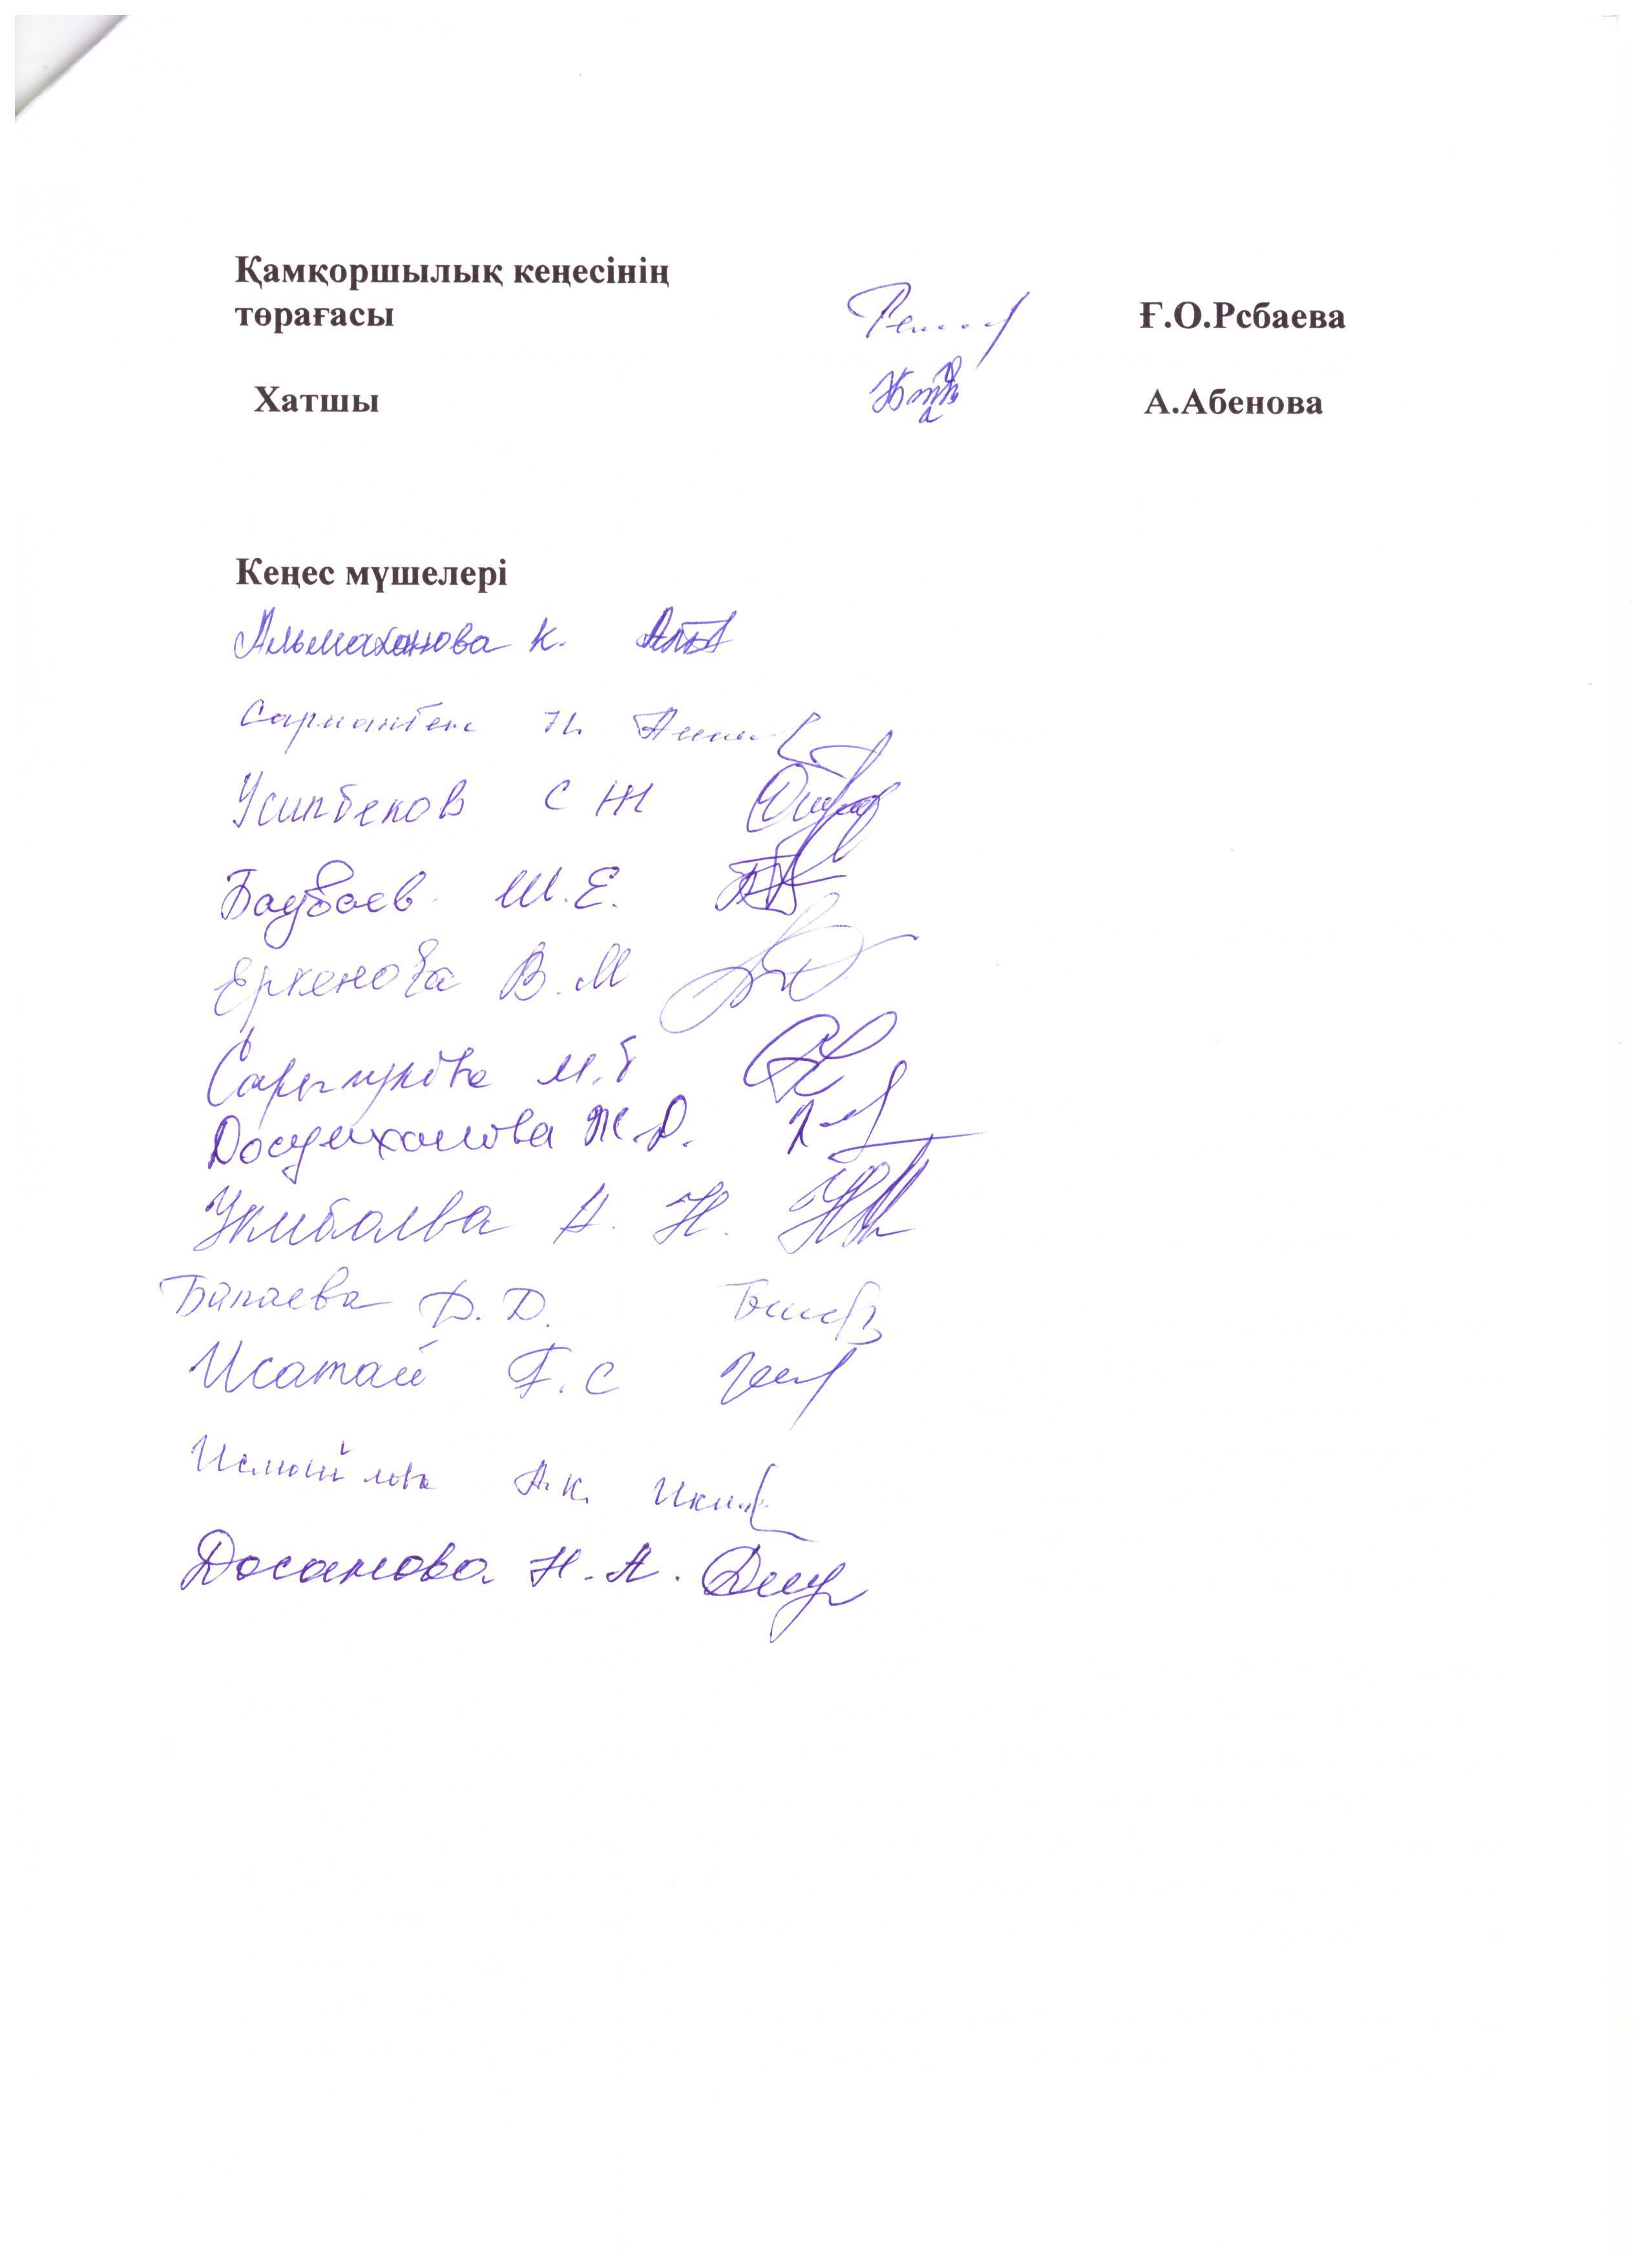 Қамқоршылық кеңесінің
төрағасы Ғ.О.Рсбаева
Хатшы А.Абенова
Кеңес мүшелері
Альмаханова К.
Сарманбек Н.
Усипбеков С Ж
Баубаев. Ш.Е.
Еркенова В.М
М.Б
Ж.Д.
А. Н.
Бапаева Д.Д.
Исатай Г.С
Исмайлова А.К.
Досанова Н.А.